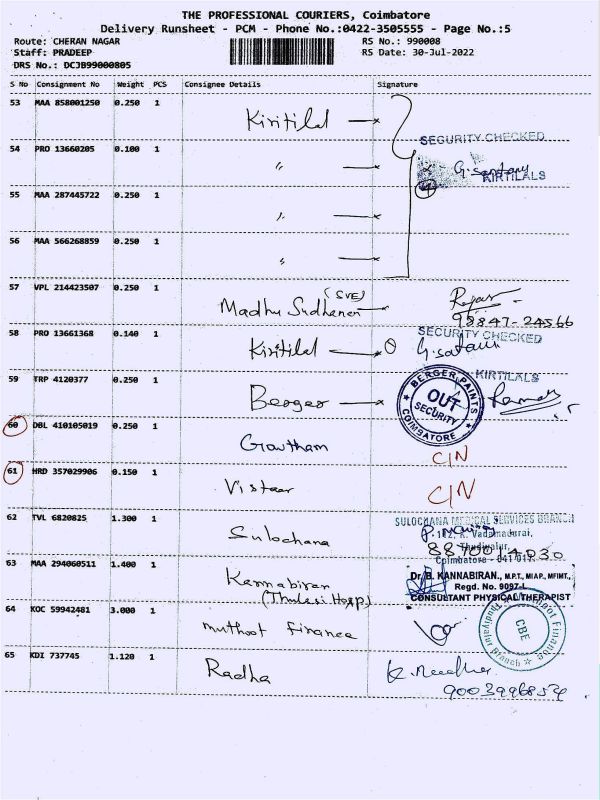 THE PROFESSIONAL COURIERS, Coimbatore
Delivery Runsheet - PCM - Phone No.:0422-3505555 - Page No.:5
Route: CHERAN NAGAR RS No.: 990008
Staff: PRADEEP RS Date: 30-Jul-2022
DRS No.: DCJB99000805
S No Consignment No Weight PCS Consignee Details Signature
53 MAA 858001250 0.250 1 Kiritilal
SECURITY CHECKED
54 PRO 13660205 0.100 1 "
KIRTILALS
55 MAA 287445722 0.250 1 "
56 MAA 566268859 0.250 1 "
57 VPL 214423507 0.250 1 Madhu Sudhanan (SVE)
98847-24566
58 PRO 13661368 0.140 1 Kiritilal
SECURITY CHECKED
KIRTILALS
59 TRP 4120377 0.250 1 Berger
BERGER PAINTS
OUT
SECURITY
COIMBATORE
60 DBL 410105019 0.250 1 Gowtham C/N
61 HRD 357029906 0.150 1 Vistaar C/N
62 TVL 6820825 1.300 1 Sulochana
SULOCHANA MEDICAL SERVICES BRANCH
Thudiyalur,
Coimbatore - 641 017
63 MAA 294060511 1.400 1 Kannabiran
(Thulasi Hosp)
Dr. B. KANNABIRAN., M.P.T., MIAP., MFIMT.,
Regd. No. 9097-L
CONSULTANT PHYSICAL THERAPIST
64 KOC 59942481 3.000 1 muthoot finance
Muthoot Finance
CBE
Thudiyalur Branch
65 KDI 737745 1.120 1 Radha